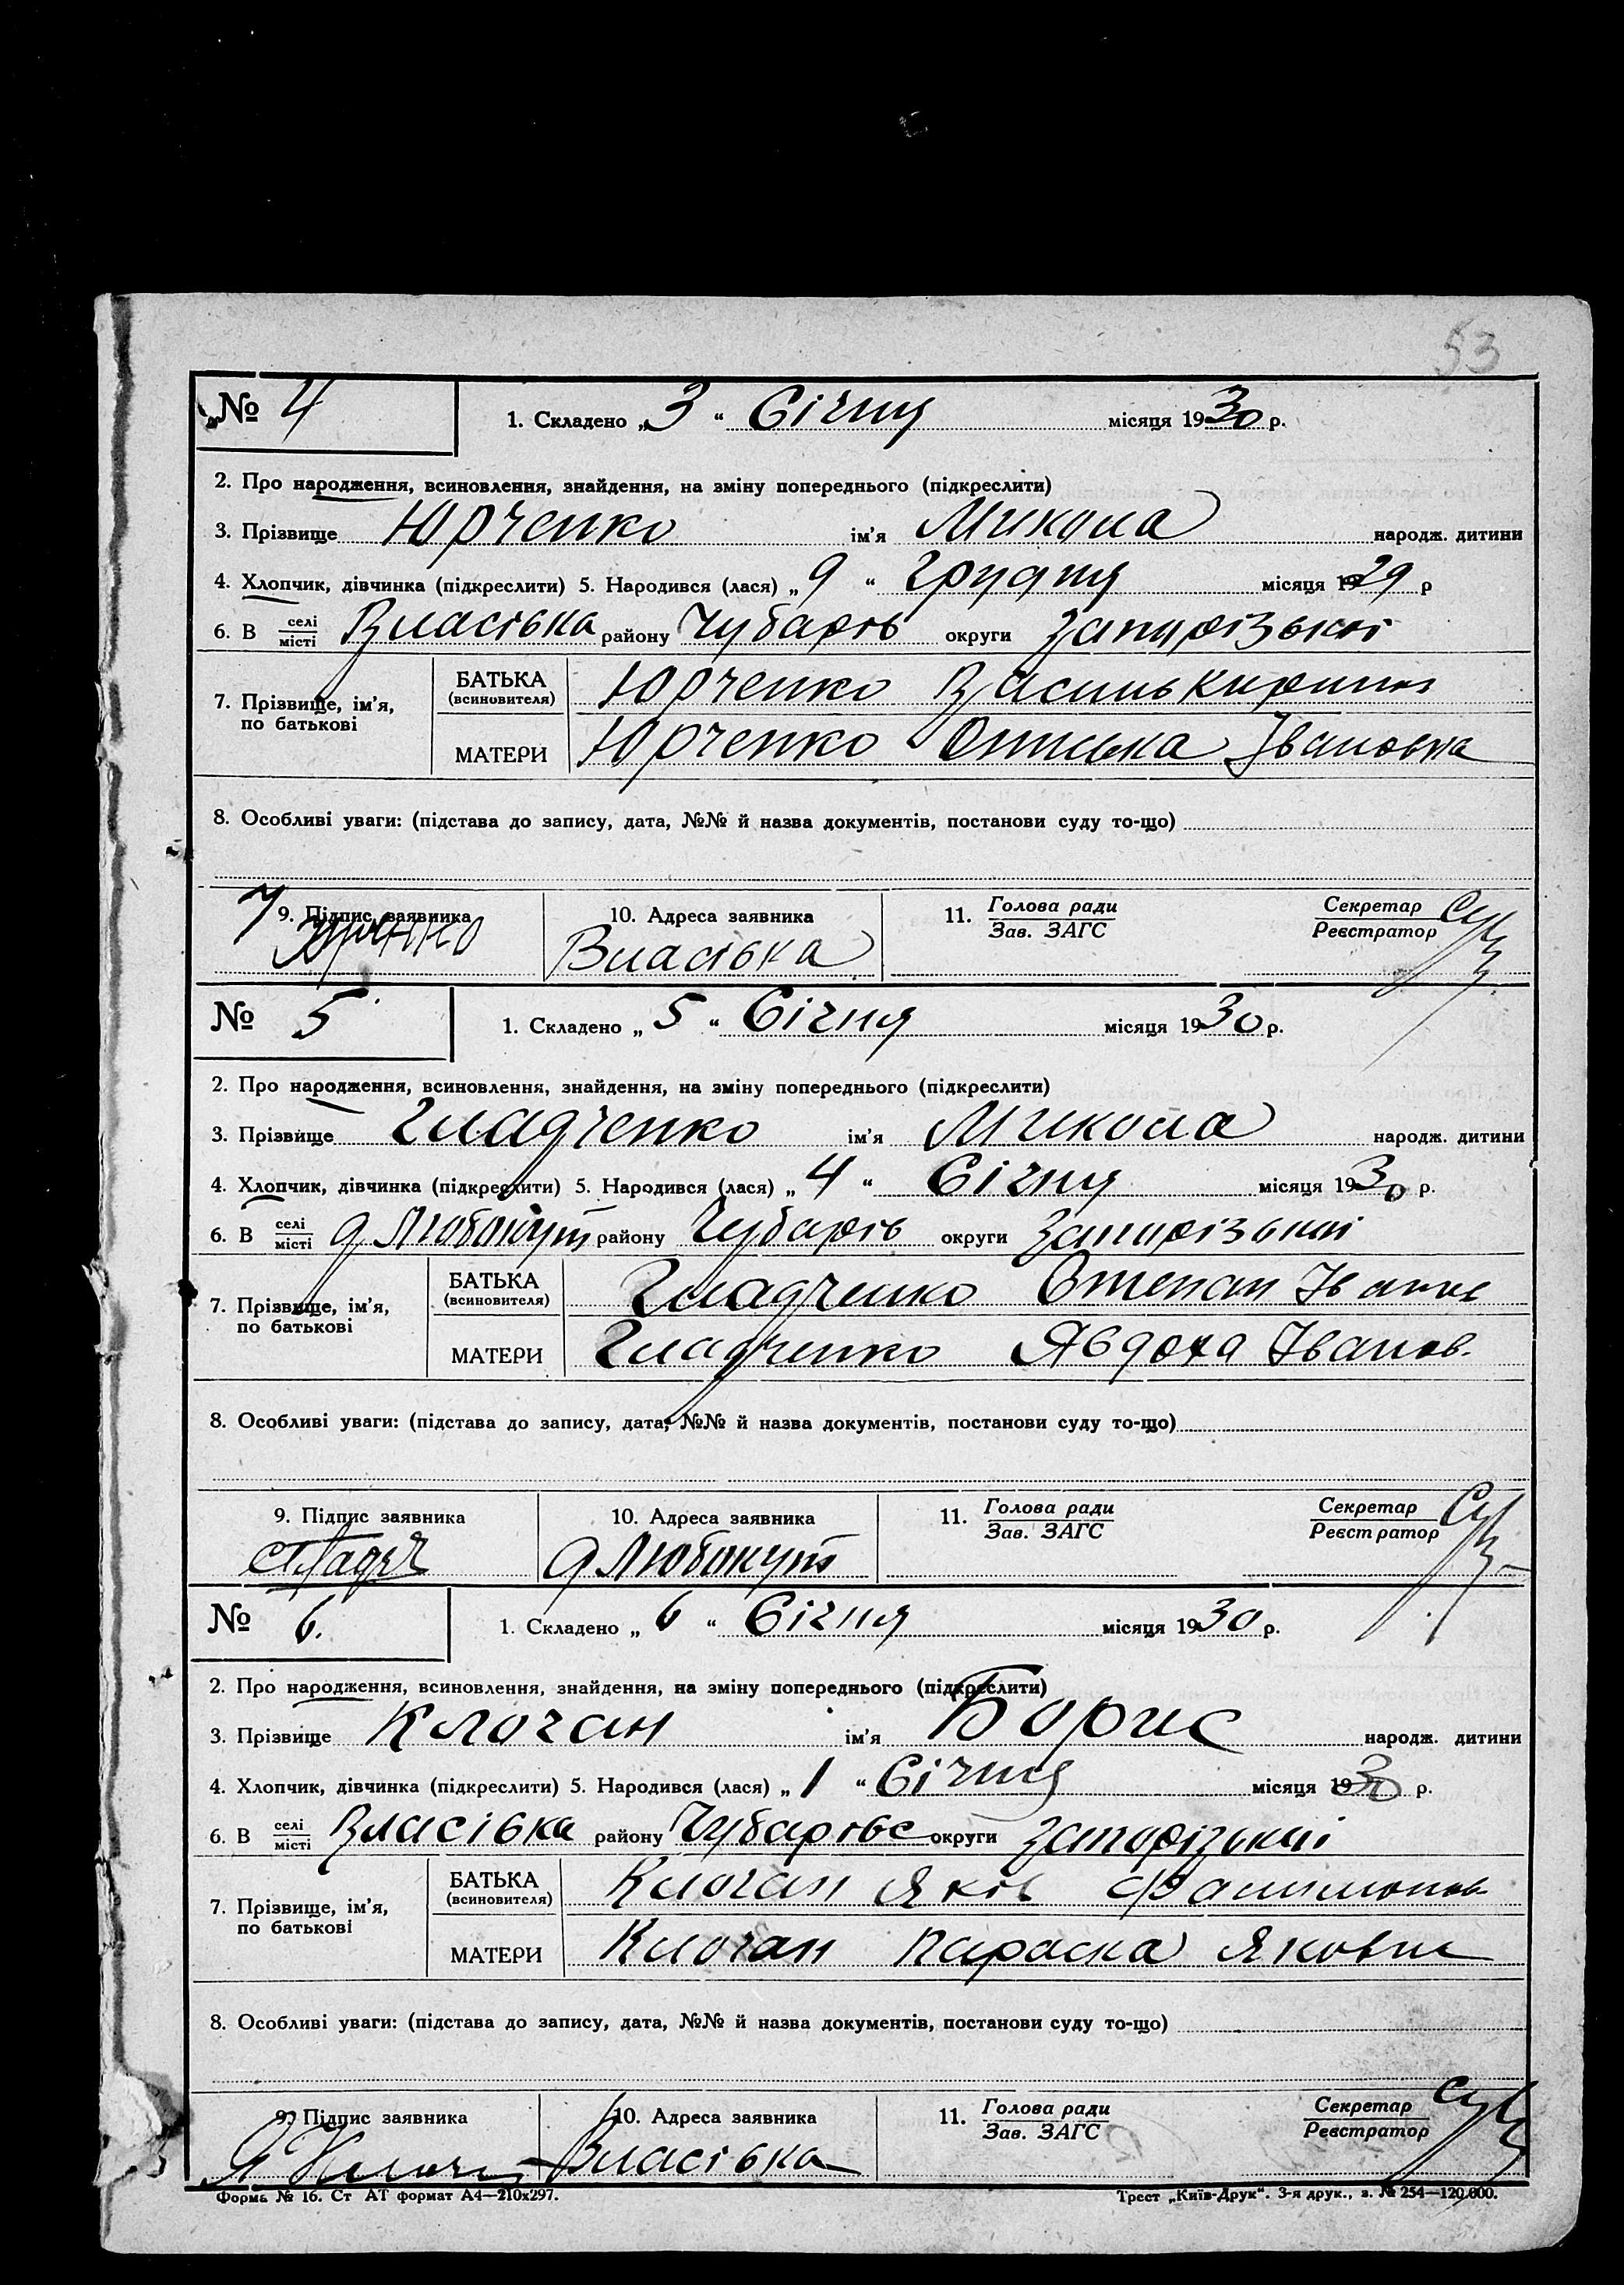 53
№ 4
1. Складено „3“ Січня місяця 1930 р.
2. Про народження, всиновлення, знайдення, на зміну попереднього (підкреслити)
3. Прізвище Юрченко ім'я Микола народж. дитини
4. Хлопчик, дівчинка (підкреслити) 5. Народився (лася) „9“ Грудня місяця 1929 р
6. В селі місті Власівка району Чубарів округи Запорізької
7. Прізвище, ім'я, по батькові
БАТЬКА (всиновителя) Юрченко Василь Кирилов
МАТЕРИ Юрченко Ониська Івановна
8. Особливі уваги: (підстава до запису, дата, №№ й назва документів, постанови суду то-що)
9. Підпис заявника 10. Адреса заявника 11. Голова ради Зав. ЗАГС Секретар Реєстратор
Власівка
№ 5
1. Складено „5“ Січня місяця 1930 р.
2. Про народження, всиновлення, знайдення, на зміну попереднього (підкреслити)
3. Прізвище Гладченко ім'я Микола народж. дитини
4. Хлопчик, дівчинка (підкреслити) 5. Народився (лася) „4“ Січня місяця 1930 р.
6. В селі місті д Любокут району Чубарів округи Запорізької
7. Прізвище, ім'я, по батькові
БАТЬКА (всиновителя) Гладченко Степан Іванов
МАТЕРИ Гладченко Явдоха Іванов.
8. Особливі уваги: (підстава до запису, дата, №№ й назва документів, постанови суду то-що)
9. Підпис заявника 10. Адреса заявника 11. Голова ради Зав. ЗАГС Секретар Реєстратор
д Любокут
№ 6.
1. Складено „6“ Січня місяця 1930 р.
2. Про народження, всиновлення, знайдення, на зміну попереднього (підкреслити)
3. Прізвище Клочан ім'я Борис народж. дитини
4. Хлопчик, дівчинка (підкреслити) 5. Народився (лася) „1“ Січня місяця 1930 р.
6. В селі місті Власівка району Чубарівс округи Запорізької
7. Прізвище, ім'я, по батькові
БАТЬКА (всиновителя) Клочан Яків Филимонов
МАТЕРИ Клочан Параска Яковна
8. Особливі уваги: (підстава до запису, дата, №№ й назва документів, постанови суду то-що)
9. Підпис заявника 10. Адреса заявника 11. Голова ради Зав. ЗАГС Секретар Реєстратор
Власівка
Форма № 16. Ст АТ формат А4—210х297. Трест „Київ-Друк“. 3-я друк., з. № 254—120.000.